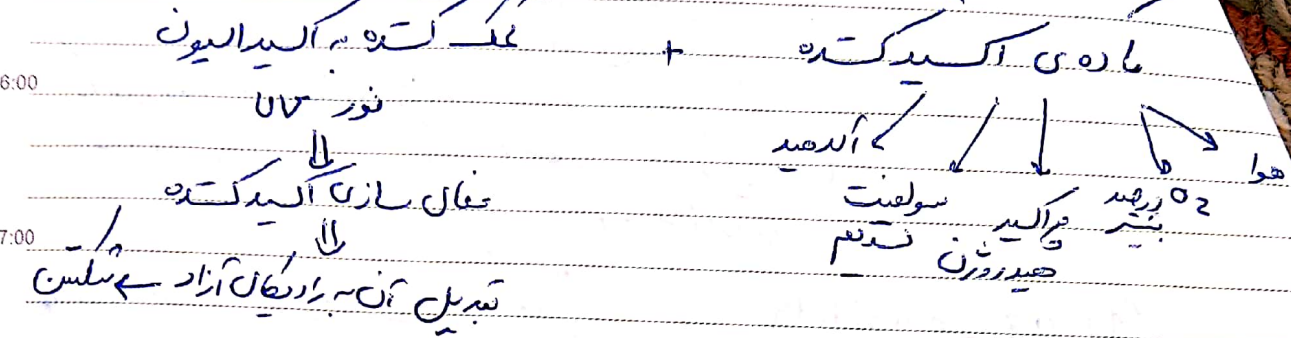 ماده ی اکسید کننده + کمک کننده به اکسیداسیون
هوا
O2 درصد بیشتر
پراکسید هیدروژن
سولفیت سدیم
آلدهید
نور
فعال سازی اکسید کننده
تبدیل آن به رادیکال آزاد
6:00
7:00